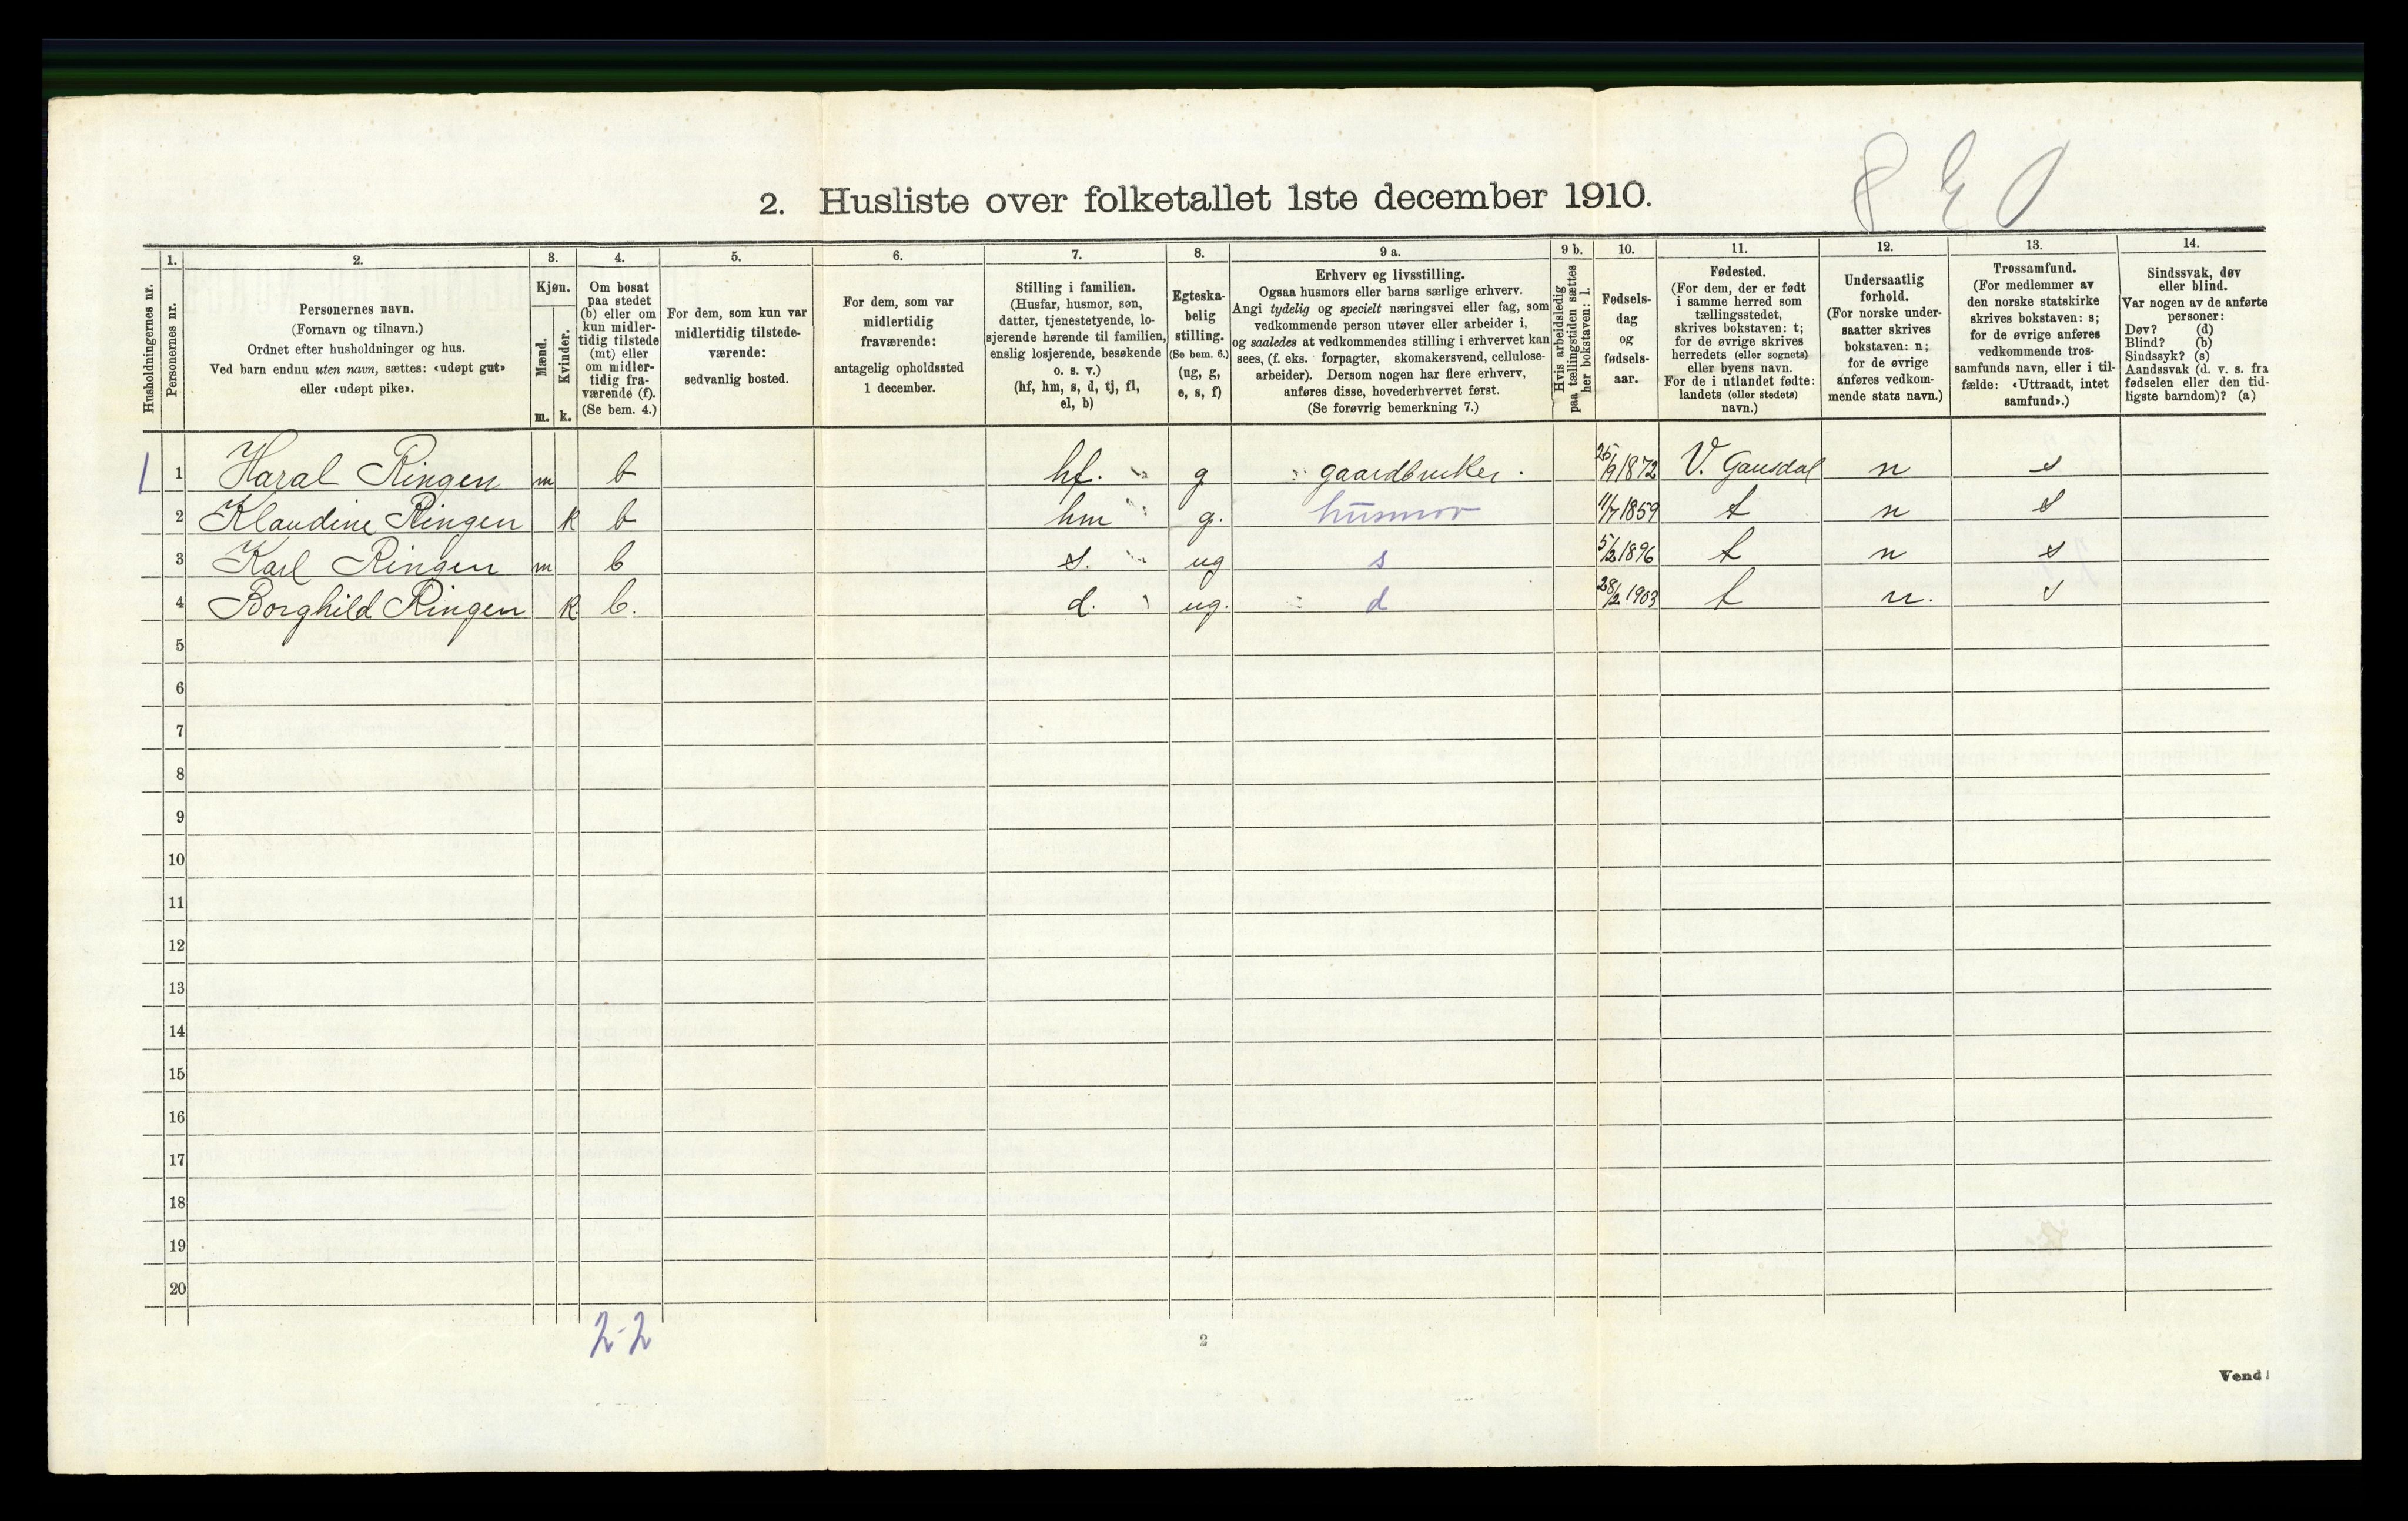 2. Husliste over folketallet 1ste december 1910.
1. 2. 3. 4. 5. 6. 7. 8. 9 a. 9 b. 10. 11. 12. 13. 14.
Husholdningernes nr.
Personernes nr.
Personernes navn.
(Fornavn og tilnavn.)
Ordnet efter husholdninger og hus.
Ved barn endnu uten navn, sættes: «udøpt gut»
eller «udøpt pike».
Kjøn.
Mænd.
m.
Kvinder.
k.
Om bosat
paa stedet
(b) eller om
kun midler-
tidig tilstede
(mt) eller
om midler-
tidig fra-
værende (f).
(Se bem. 4.)
For dem, som kun var
midlertidig tilstede-
værende:
sedvanlig bosted.
For dem, som var
midlertidig
fraværende:
antagelig opholdssted
1 december.
Stilling i familien.
(Husfar, husmor, søn,
datter, tjenestetyende, lo-
sjerende hørende til familien,
enslig losjerende, besøkende
o. s. v.)
(hf, hm, s, d, tj, fl,
el, b)
Egteska-
belig
stilling.
(Se bem. 6.)
(ug, g,
e, s, f)
Erhverv og livsstilling.
Ogsaa husmors eller barns særlige erhverv.
Angi tydelig og specielt næringsvei eller fag, som
vedkommende person utøver eller arbeider i,
og saaledes at vedkommendes stilling i erhvervet kan
sees, (f. eks. forpagter, skomakersvend, cellulose-
arbeider). Dersom nogen har flere erhverv,
anføres disse, hovederhvervet først.
(Se forøvrig bemerkning 7.)
Hvis arbeidsledig
paa tællingstiden sættes
her bokstaven: l.
Fødsels-
dag
og
fødsels-
aar.
Fødested.
(For dem, der er født
i samme herred som
tællingsstedet,
skrives bokstaven: t;
for de øvrige skrives
herredets (eller sognets)
eller byens navn.
For de i utlandet fødte:
landets (eller stedets)
navn.)
Undersaatlig
forhold.
(For norske under-
saatter skrives
bokstaven: n;
for de øvrige
anføres vedkom-
mende stats navn.)
Trossamfund.
(For medlemmer av
den norske statskirke
skrives bokstaven: s;
for de øvrige anføres
vedkommende tros-
samfunds navn, eller i til-
fælde: «Uttraadt, intet
samfund».)
Sindssvak, døv
eller blind.
Var nogen av de anførte
personer:
Døv? (d)
Blind? (b)
Sindssyk? (s)
Aandssvak (d. v. s. fra
fødselen eller den tid-
ligste barndom)? (a)
1 1 Haral Ringen m b hf. g gaardbruker. 25/9 1872 V. Gausdal n s
2 Klaudine Ringen k b hm g. husmor 11/7 1859 t n s
3 Karl Ringen m b s. ug s 5/2 1896 t n s
4 Borghild Ringen k. b. d. ug. d 28/2 1903 t n. s
5
6
7
8
9
10
11
12
13
14
15
16
17
18
19
20
2-2
2
Vend!